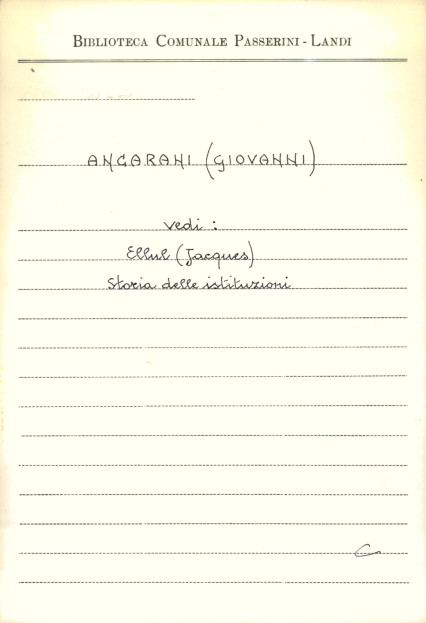 BIBLIOTECA COMUNALE PASSERINI - LANDI
ANCARANI (GIOVANNI)
vedi :
Ellul (Jacques)
Storia delle istituzioni